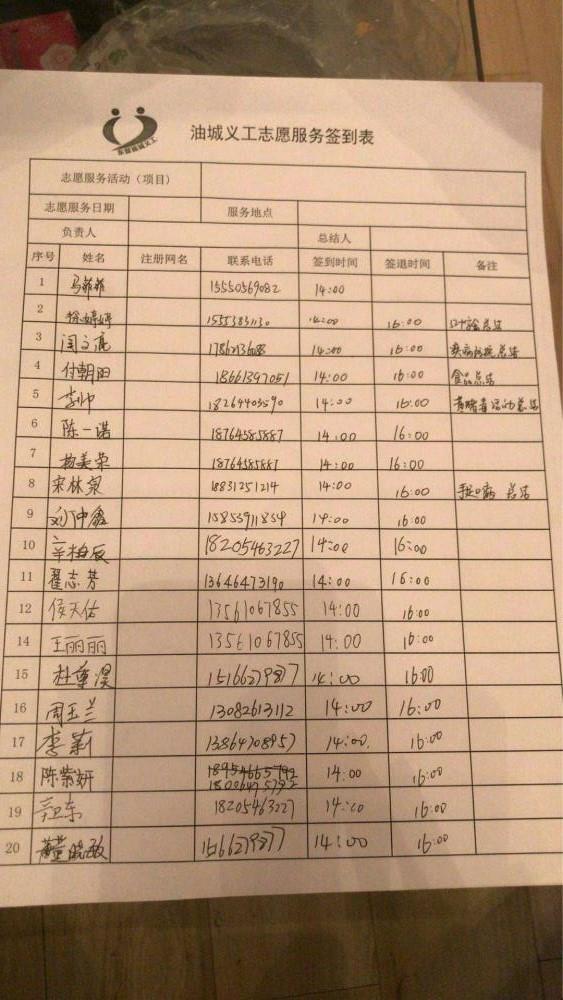 东营油城义工
油城义工志愿服务签到表
志愿服务活动（项目）
志愿服务日期 服务地点
负责人 总结人
序号 姓名 注册网名 联系电话 签到时间 签退时间 备注
1 马菲菲 15550569082 14:00
2 徐婷婷 15553831130 14:00 16:00 总结
3 闫文亮 14:00 16:00 总结
4 付朝阳 18661397051 14:00 16:00 食品总结
5 李帅 18264403590 14:00 16:00 志愿者活动总结
6 陈一诺 18764585887 14:00 16:00
7 杨美荣 18764585887 14:00 16:00
8 宋林泉 18831251214 14:00 16:00 手足口病 总结
9 刘仲鑫 15855911854 14:00 16:00
10 辛柏辰 18205463227 14:00 16:00
11 翟志芳 13646473190 14:00 16:00
12 侯天佑 13561067855 14:00 16:00
14 王丽丽 13561067855 14:00 16:00
15 杜 14:00 16:00
16 周玉兰 13082613112 14:00 16:00
17 李莉 13864708957 14:00. 16:00
18 陈紫妍 14:00 16:00
19 18205463227 14:00 16:00
20 14:00 16:00